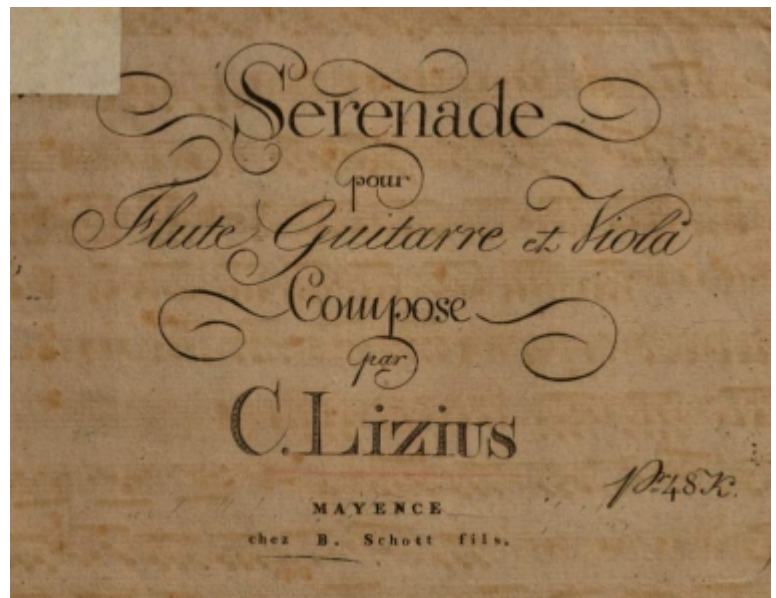 Serenade
pour
Flute Guitarre et Viola
Compose
par
C. Lizius
Pr. 48 K.
MAYENCE
chez B. Schott fils.